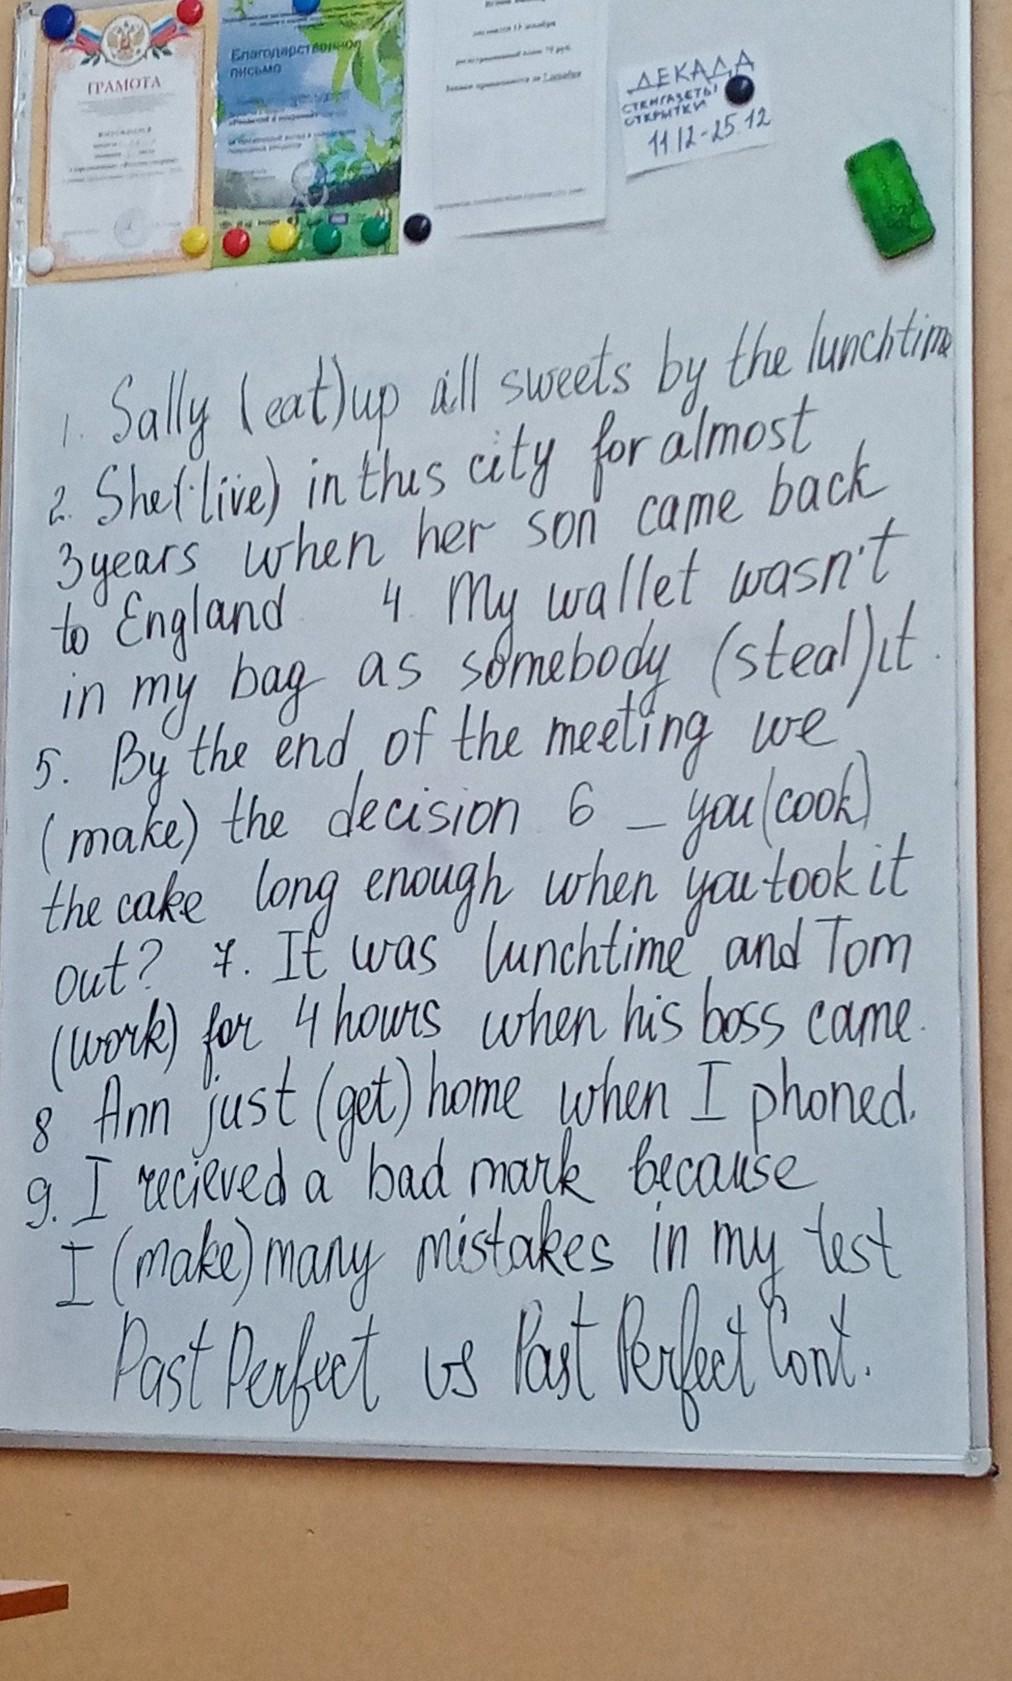 ГРАМОТА
Благодарственное
письмо
ДЕКАДА
СТЕНГАЗЕТЫ
ОТКРЫТКИ
11 12-25.12
1. Sally (eat)up all sweets by the lunchtime
2. She (live) in this city for almost
3 years when her son came back
to England 4. My wallet wasn't
in my bag as somebody (steal) it.
5. By the end of the meeting we
(make) the decision 6 _ you (cook)
the cake long enough when you took it
out? 7. It was lunchtime and Tom
(work) for 4 hours when his boss came.
8 Ann just (get) home when I phoned.
9. I recieved a bad mark because
I (make) many mistakes in my test
Past Perfect vs Past Perfect Cont.